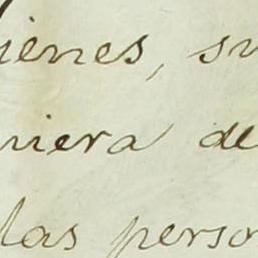 ienes, su
niera de
las perso